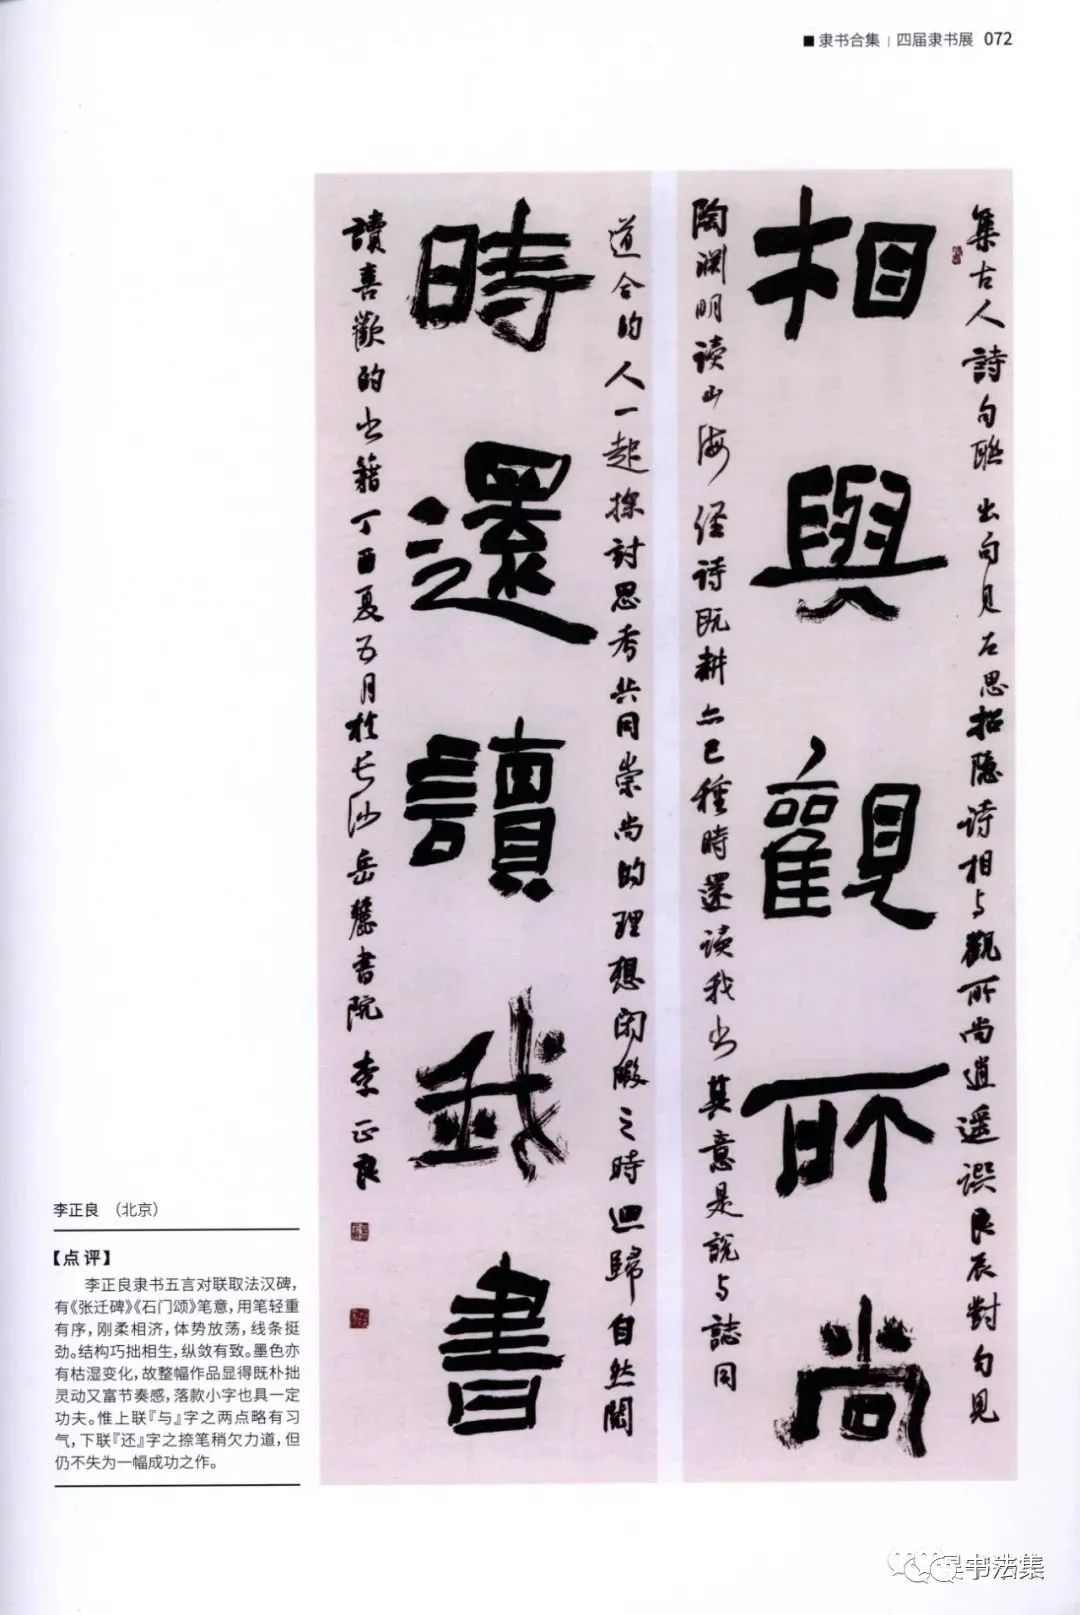 ■隶书合集 | 四届隶书展 072
集古人詩句聯 出句見左思招隐诗相与觀所尚逍遥误良辰對句見
相與觀所尚
陶渊明读山海经诗既耕亦已種時還读我书其意是說与誌同
道合的人一起探討思考共同崇尚的理想闲暇之時迴歸自然閱
時還讀我書
讀喜歡的书籍丁酉夏五月於长沙岳麓書院 李正良
李正良 （北京）
【点评】
李正良隶书五言对联取法汉碑，
有《张迁碑》《石门颂》笔意，用笔轻重
有序，刚柔相济，体势放荡，线条挺
劲。结构巧拙相生，纵敛有致。墨色亦
有枯湿变化，故整幅作品显得既朴拙
灵动又富节奏感，落款小字也具一定
功夫。惟上联『与』字之两点略有习
气，下联『还』字之捺笔稍欠力道，但
仍不失为一幅成功之作。
书法集